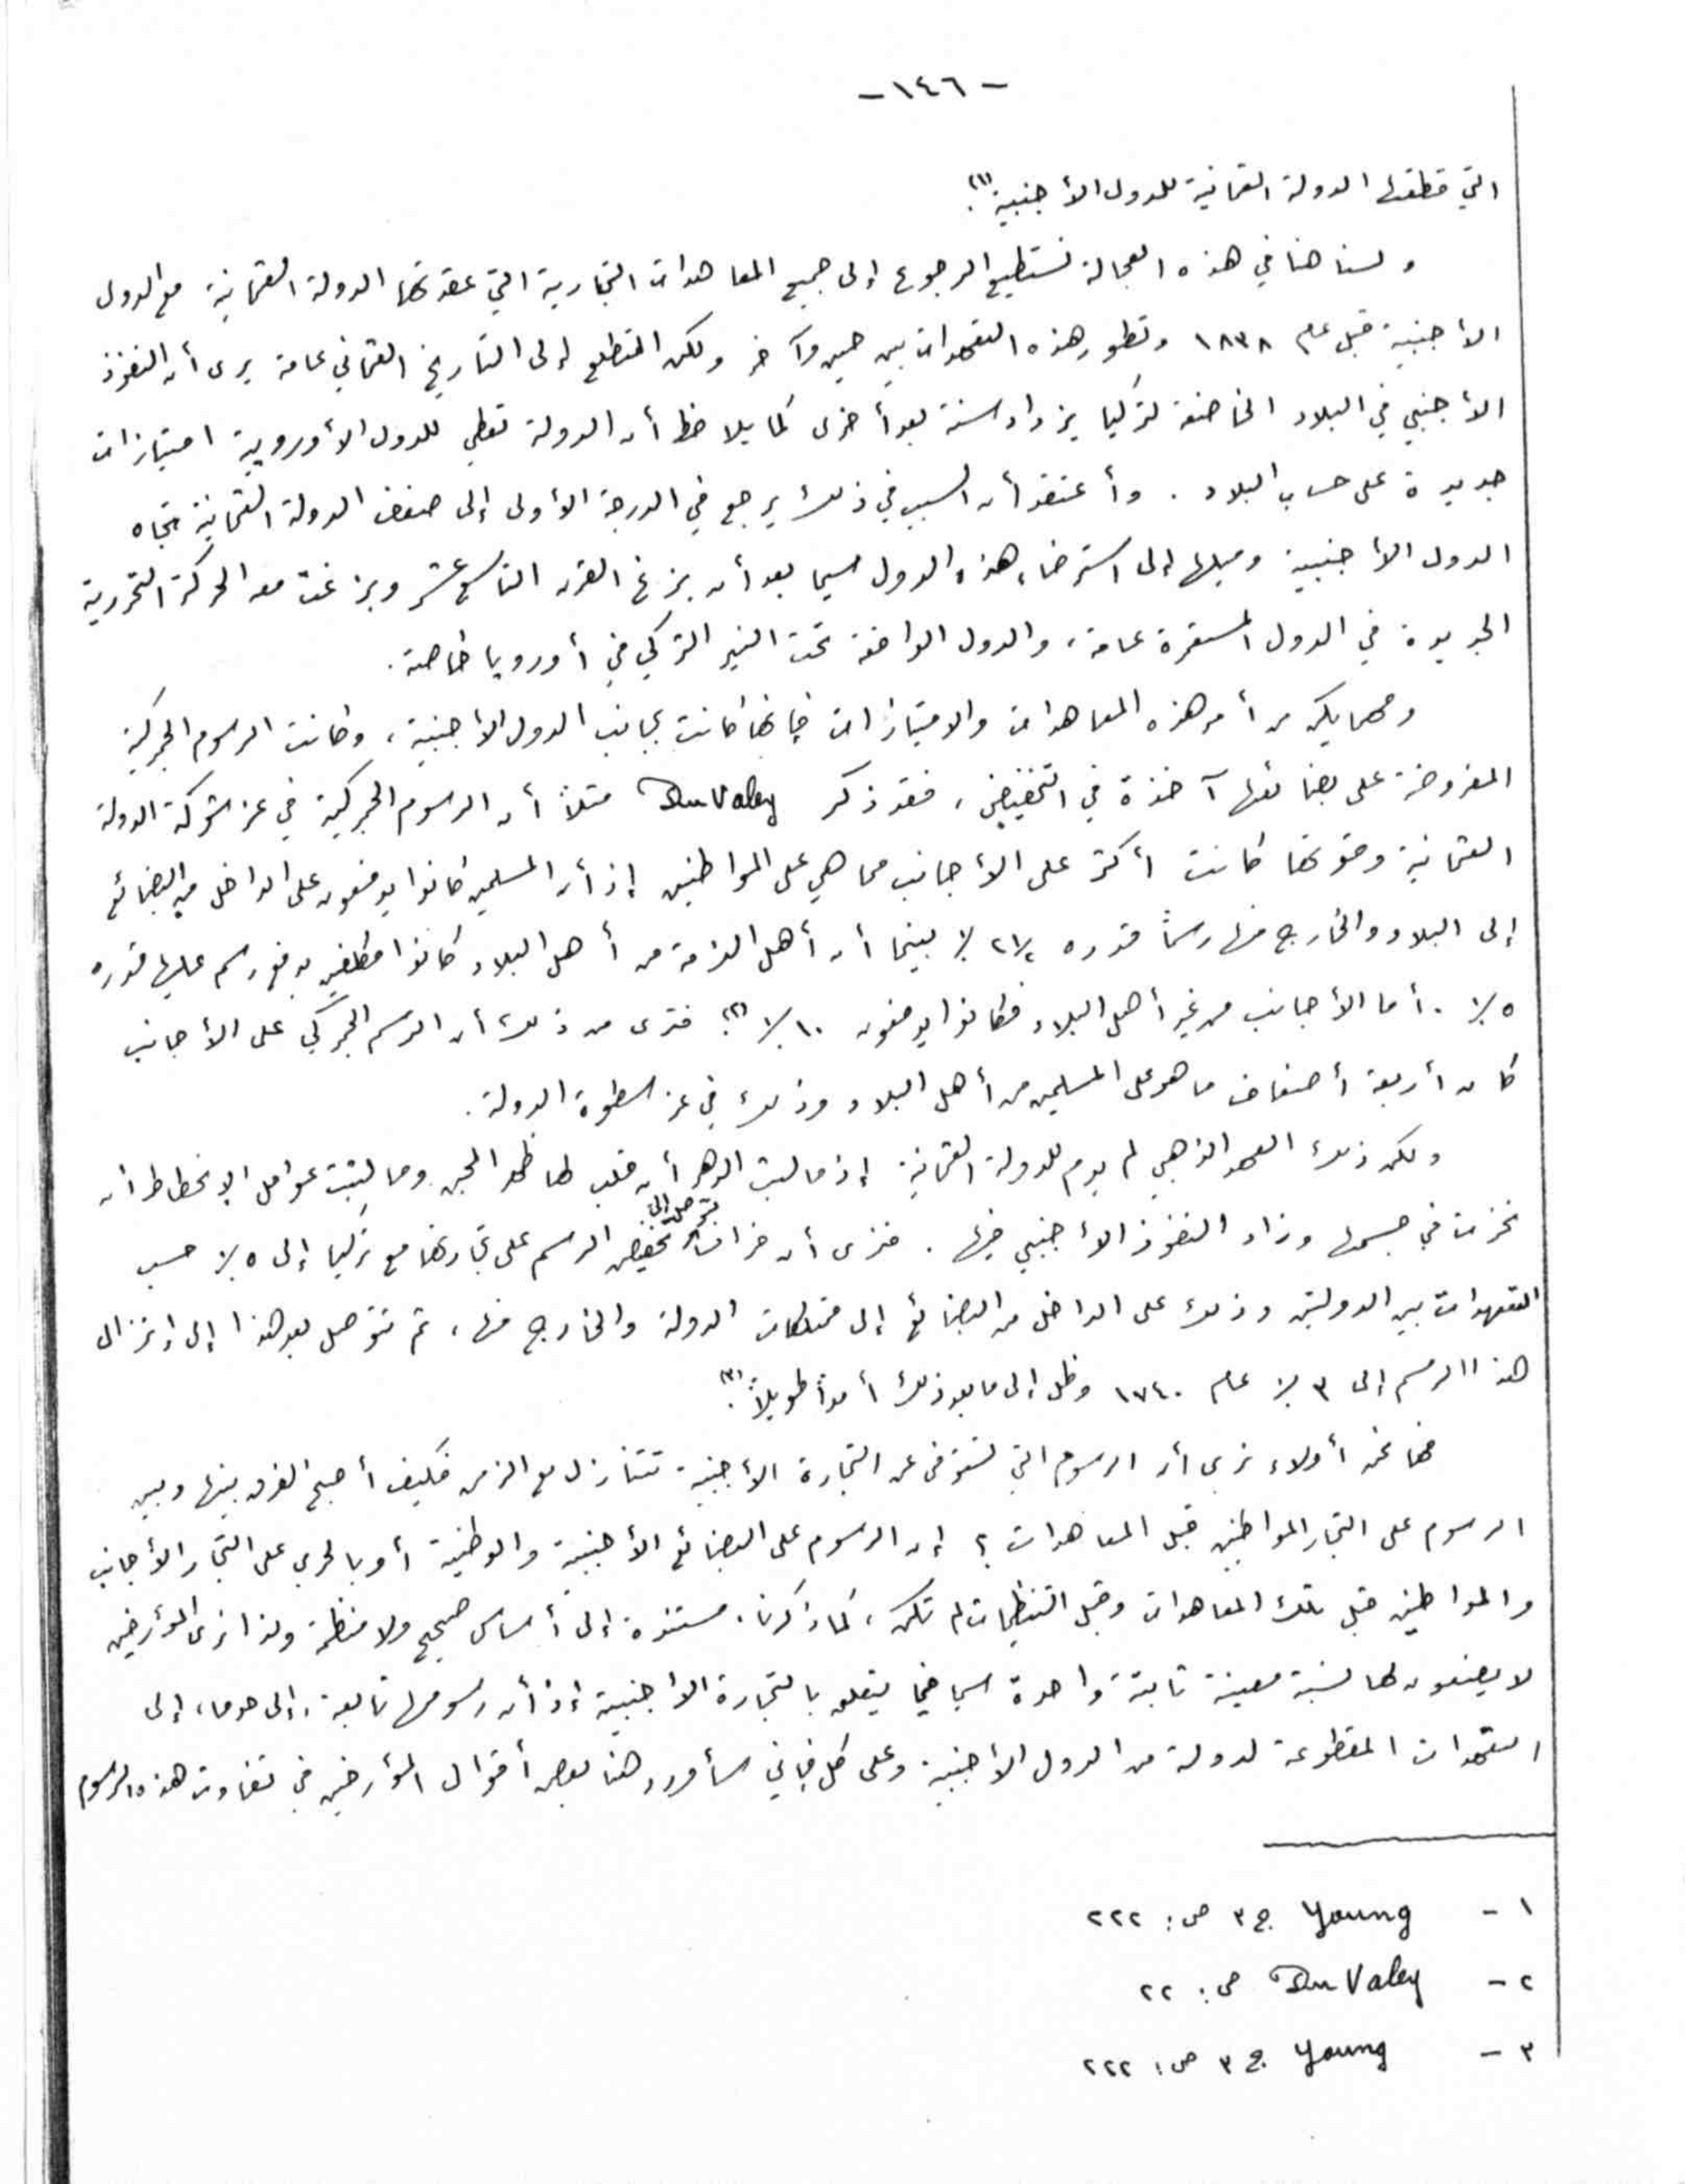 - ١٤٦ -
التي قطعتها الدولة العثمانية للدول الأجنبية (١).
ولسنا هنا في هذه العجالة نستطيع الرجوع إلى جميع المعاهدات التجارية التي عقدتها الدولة العثمانية مع الدول
الأجنبية قبل عام ١٨٣٨ وتطور هذه التعهدات بين حين وآخر ولكن المتطلع إلى التاريخ العثماني عامة يرى أن النفوذ
الأجنبي في البلاد الخاضعة لتركيا يزداد سنة بعد أخرى كما يلاحظ أن الدولة تعطي للدول الأوروبية امتيازات
جديدة على حساب البلاد . وأعتقد أن السبب في ذلك يرجع في الدرجة الأولى إلى ضعف الدولة العثمانية تجاه
الدول الأجنبية وميلها إلى استرضاء هذه الدول سيما بعد أن بزغ القرن التاسع عشر وبزغت معه الحركة التحررية
الجديدة في الدول المستعمرة عامة، والدول الواقعة تحت النير التركي في أوروبا خاصة.
ومهما يكن من أمر هذه المعاهدات والامتيازات فإنها كانت بجانب الدول الأجنبية، وكانت الرسوم الجمركية
المفروضة على بضائعها آخذة في التخفيض، فقد ذكر Du Valey مثلاً أن الرسوم الجمركية في عز شوكة الدولة
العثمانية وقوتها كانت أكثر على الأجانب مما هي على المواطنين إذ أن المسلمين كانوا يدفعون على الداخل من البضائع
إلى البلاد والخارج منها رسماً قدره ٢١/٢ ٪ بينما أن أهل الذمة من أهل البلاد كانوا مكلفين بدفع رسم عليها قدره
٥ ٪. أما الأجانب من غير أهل البلاد فكانوا يدفعون ١٠ ٪ (٢). فترى من ذلك أن الرسم الجمركي على الأجانب
كان أربعة أضعاف ما هو على المسلمين من أهل البلاد وذلك في عز سطوة الدولة.
ولكن ذلك العهد الذهبي لم يدم للدولة العثمانية إذ ما لبث الدهر أن قلب لها ظهر المجن وما لبثت عوامل الإنحطاط أن
نخرت في جسمها وزاد النفوذ الأجنبي فيها . فنرى أن فرانسا تتوصل إلى تخفيض الرسم على تجارتها مع تركيا إلى ٥ ٪ حسب
التعهدات بين الدولتين وذلك على الداخل من البضائع إلى ممتلكات الدولة والخارج منها، ثم تتوصل بعد هذا إلى إنزال
هذا الرسم إلى ٣ ٪ عام ١٧٤٠ وظل إلى ما بعد ذلك أمداً طويلاً (٣).
فها نحن أولاء نرى أن الرسوم التي تستوفى عن التجارة الأجنبية تتنازل مع الزمن فكيف أصبح الفرق بينها وبين
الرسوم على التجار المواطنين قبل المعاهدات ؟ إن الرسوم على البضائع الأجنبية والوطنية أو بالحري على التجار الأجانب
والمواطنين قبل تلك المعاهدات وقبل التنظيمات لم تكن، كما ذكرنا، مستندة إلى أساس صحيح ولا منظمة ولذا نرى المؤرخين
لا يضعون لها نسبة معينة ثابتة واحدة سيما فيما يتعلق بالتجارة الأجنبية إذ أن رسومها تابعة، إلى حد ما، إلى
التعهدات المقطوعة لدولة من الدول الأجنبية وعلى كل فإني سأورد هنا بعض أقوال المؤرخين في تفاوت هذه الرسوم
١ - Young ج ٣ ص: ٢٢٢
٢ - Du Valey ص: ٢٢
٣ - Young ج ٣ ص: ٢٢٢